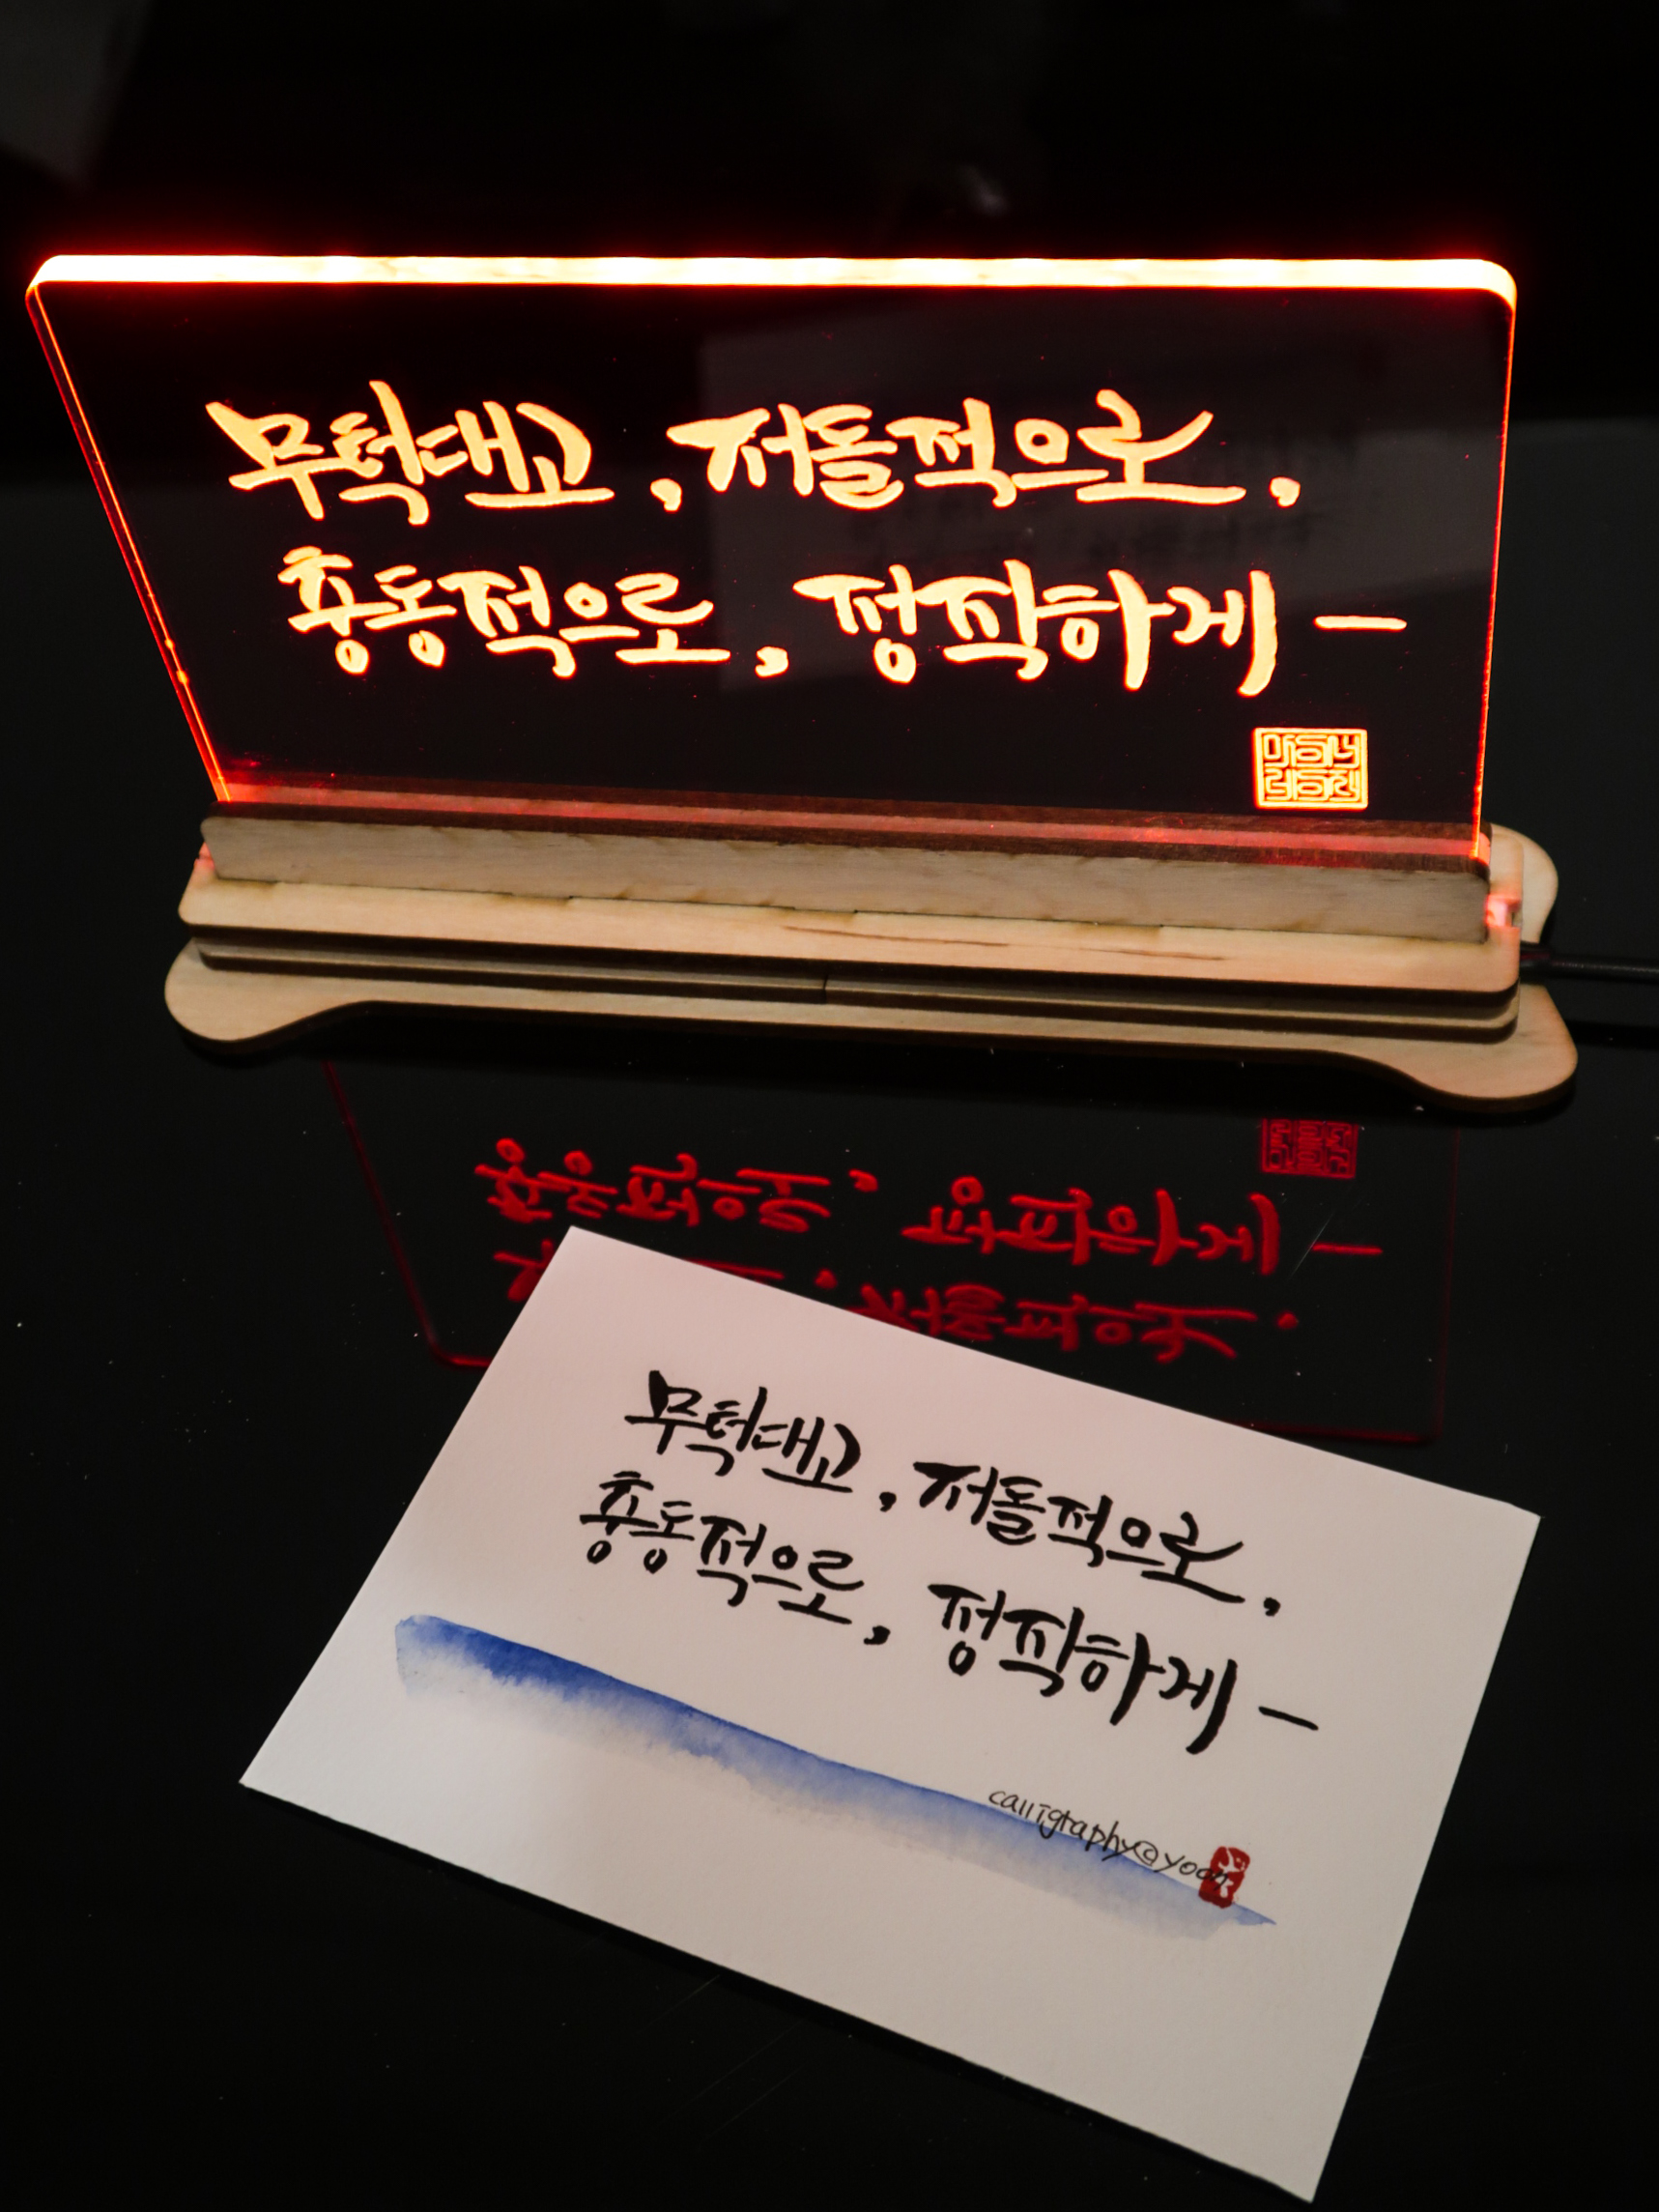 무턱대고, 저돌적으로,
충동적으로, 정직하게 -
무턱대고, 저돌적으로,
충동적으로, 정직하게 -
calligraphy@yoon